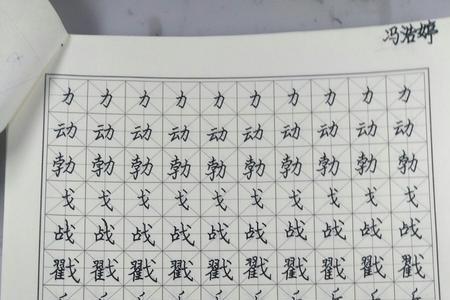 冯浩婷
力 力 力 力 力 力 力 力 力 力
动 动 动 动 动 动 动 动 动 动
勃 勃 勃 勃 勃 勃 勃 勃 勃 勃
戈 戈 戈 戈 戈 戈 戈 戈 戈 戈
战 战 战 战 战 战 战 战 战 战
戳 戳 戳 戳 戳 戳 戳 戳 戳 戳